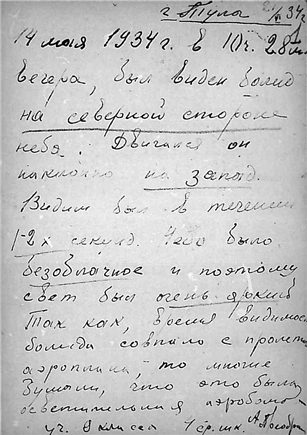 г Тула /VI 34 г
14 мая 1934 г. в 10 ч. 28 м
вечера, был виден болид
на северной стороне
неба. Двигался он
наклонно на запад.
Видим был в течении
1-2х секунд. Небо было
безоблачное и поэтому
свет был очень яркий
Так как, время видимос
болида совпало с пролето
аэроплана, то многие
думали, что это была
осветительная аэробом
уч. 9 класса 1 ср. шк.